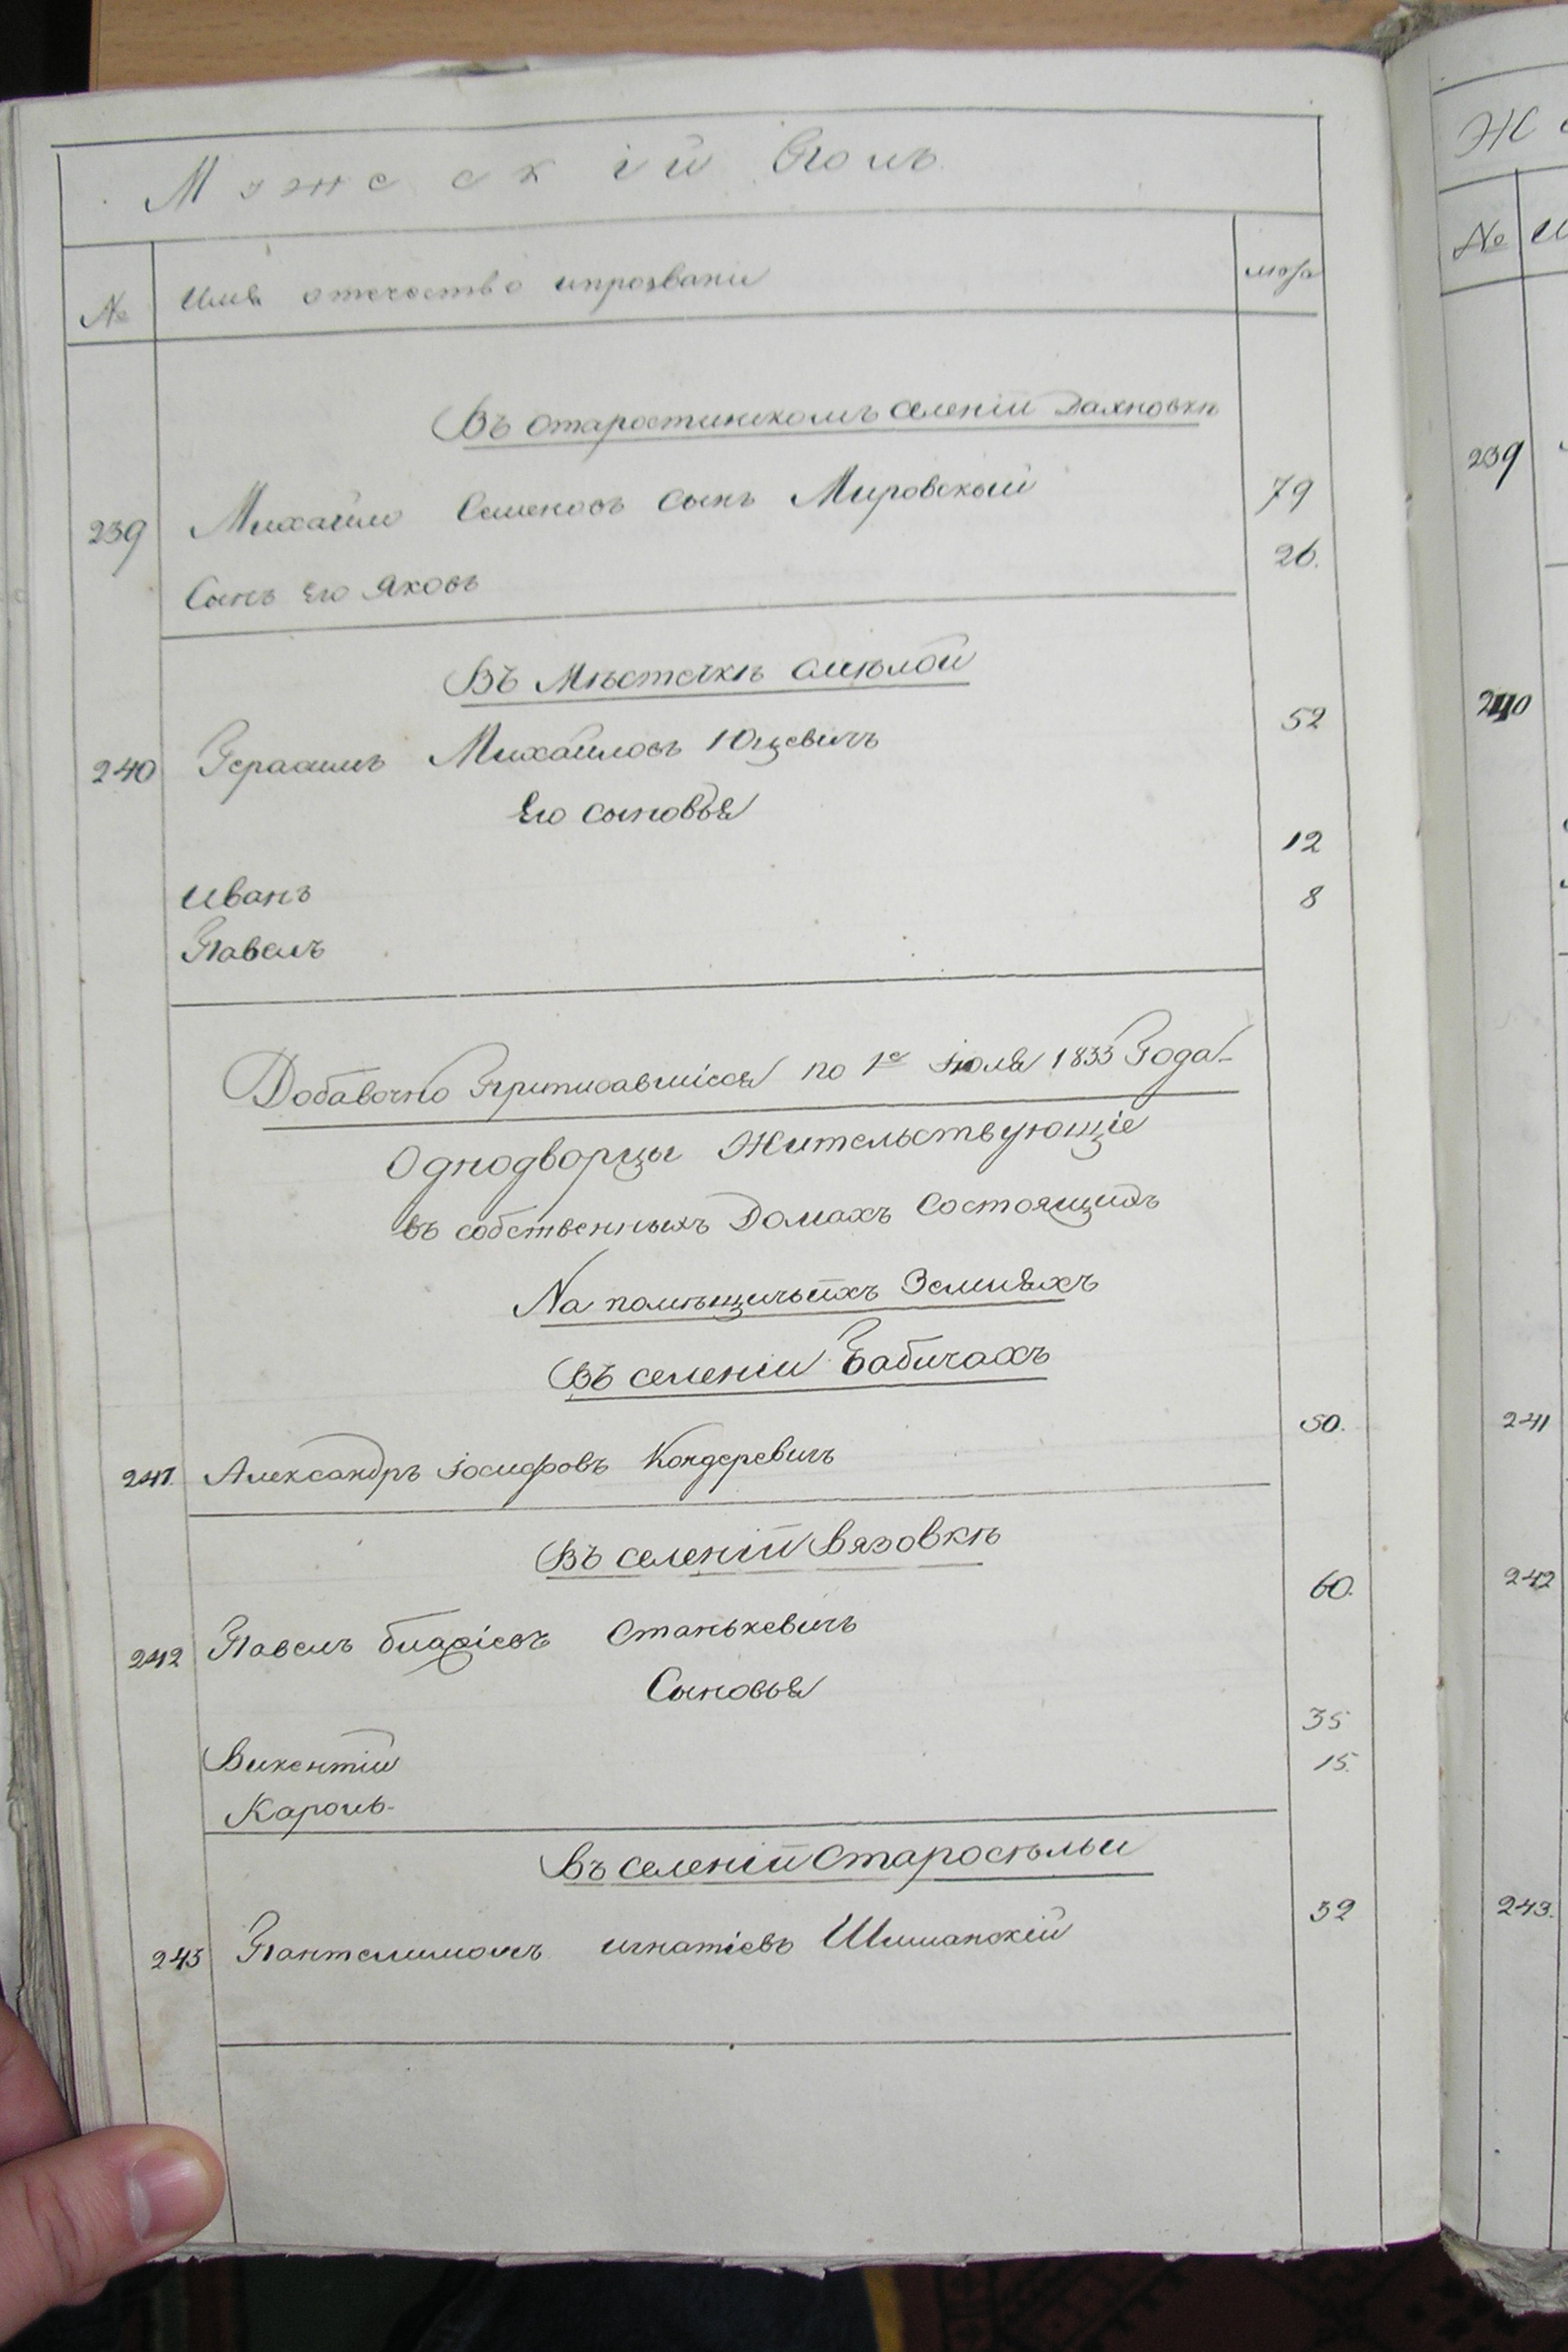 Мужескій Полъ
№ Имя отечество ипрозвание лета
Въ старостинскомъ селеніи Дахновкѣ
239 Михайло Семеновъ сынъ Мировский 79
Сынъ его Яковъ 26.
Въ Мѣстечкѣ смѣлой
240 Герасимъ Михайловъ Юцевичъ 52
Его сыновья
Иванъ 12
Павелъ 8
Добавочно Приписавшіеся по 1е іюля 1833 Года
Однодворцы Жительствующіе
въ собственныхъ Домахъ состоящихъ
На помѣщичьихъ Земляхъ
Въ селеніи Бабичахъ
241. Александръ іосифовъ Кондеревичъ 50.
Въ селеніи Вязовкѣ
242 Павелъ Станькевичъ 60.
Сыновья
Викентій 35
Кароль 15.
Въ селеніи Старосѣльи
243 Пантелимонъ игнатіевъ Шиманскій 32
Ж
№ И
239
240
241
242
243.